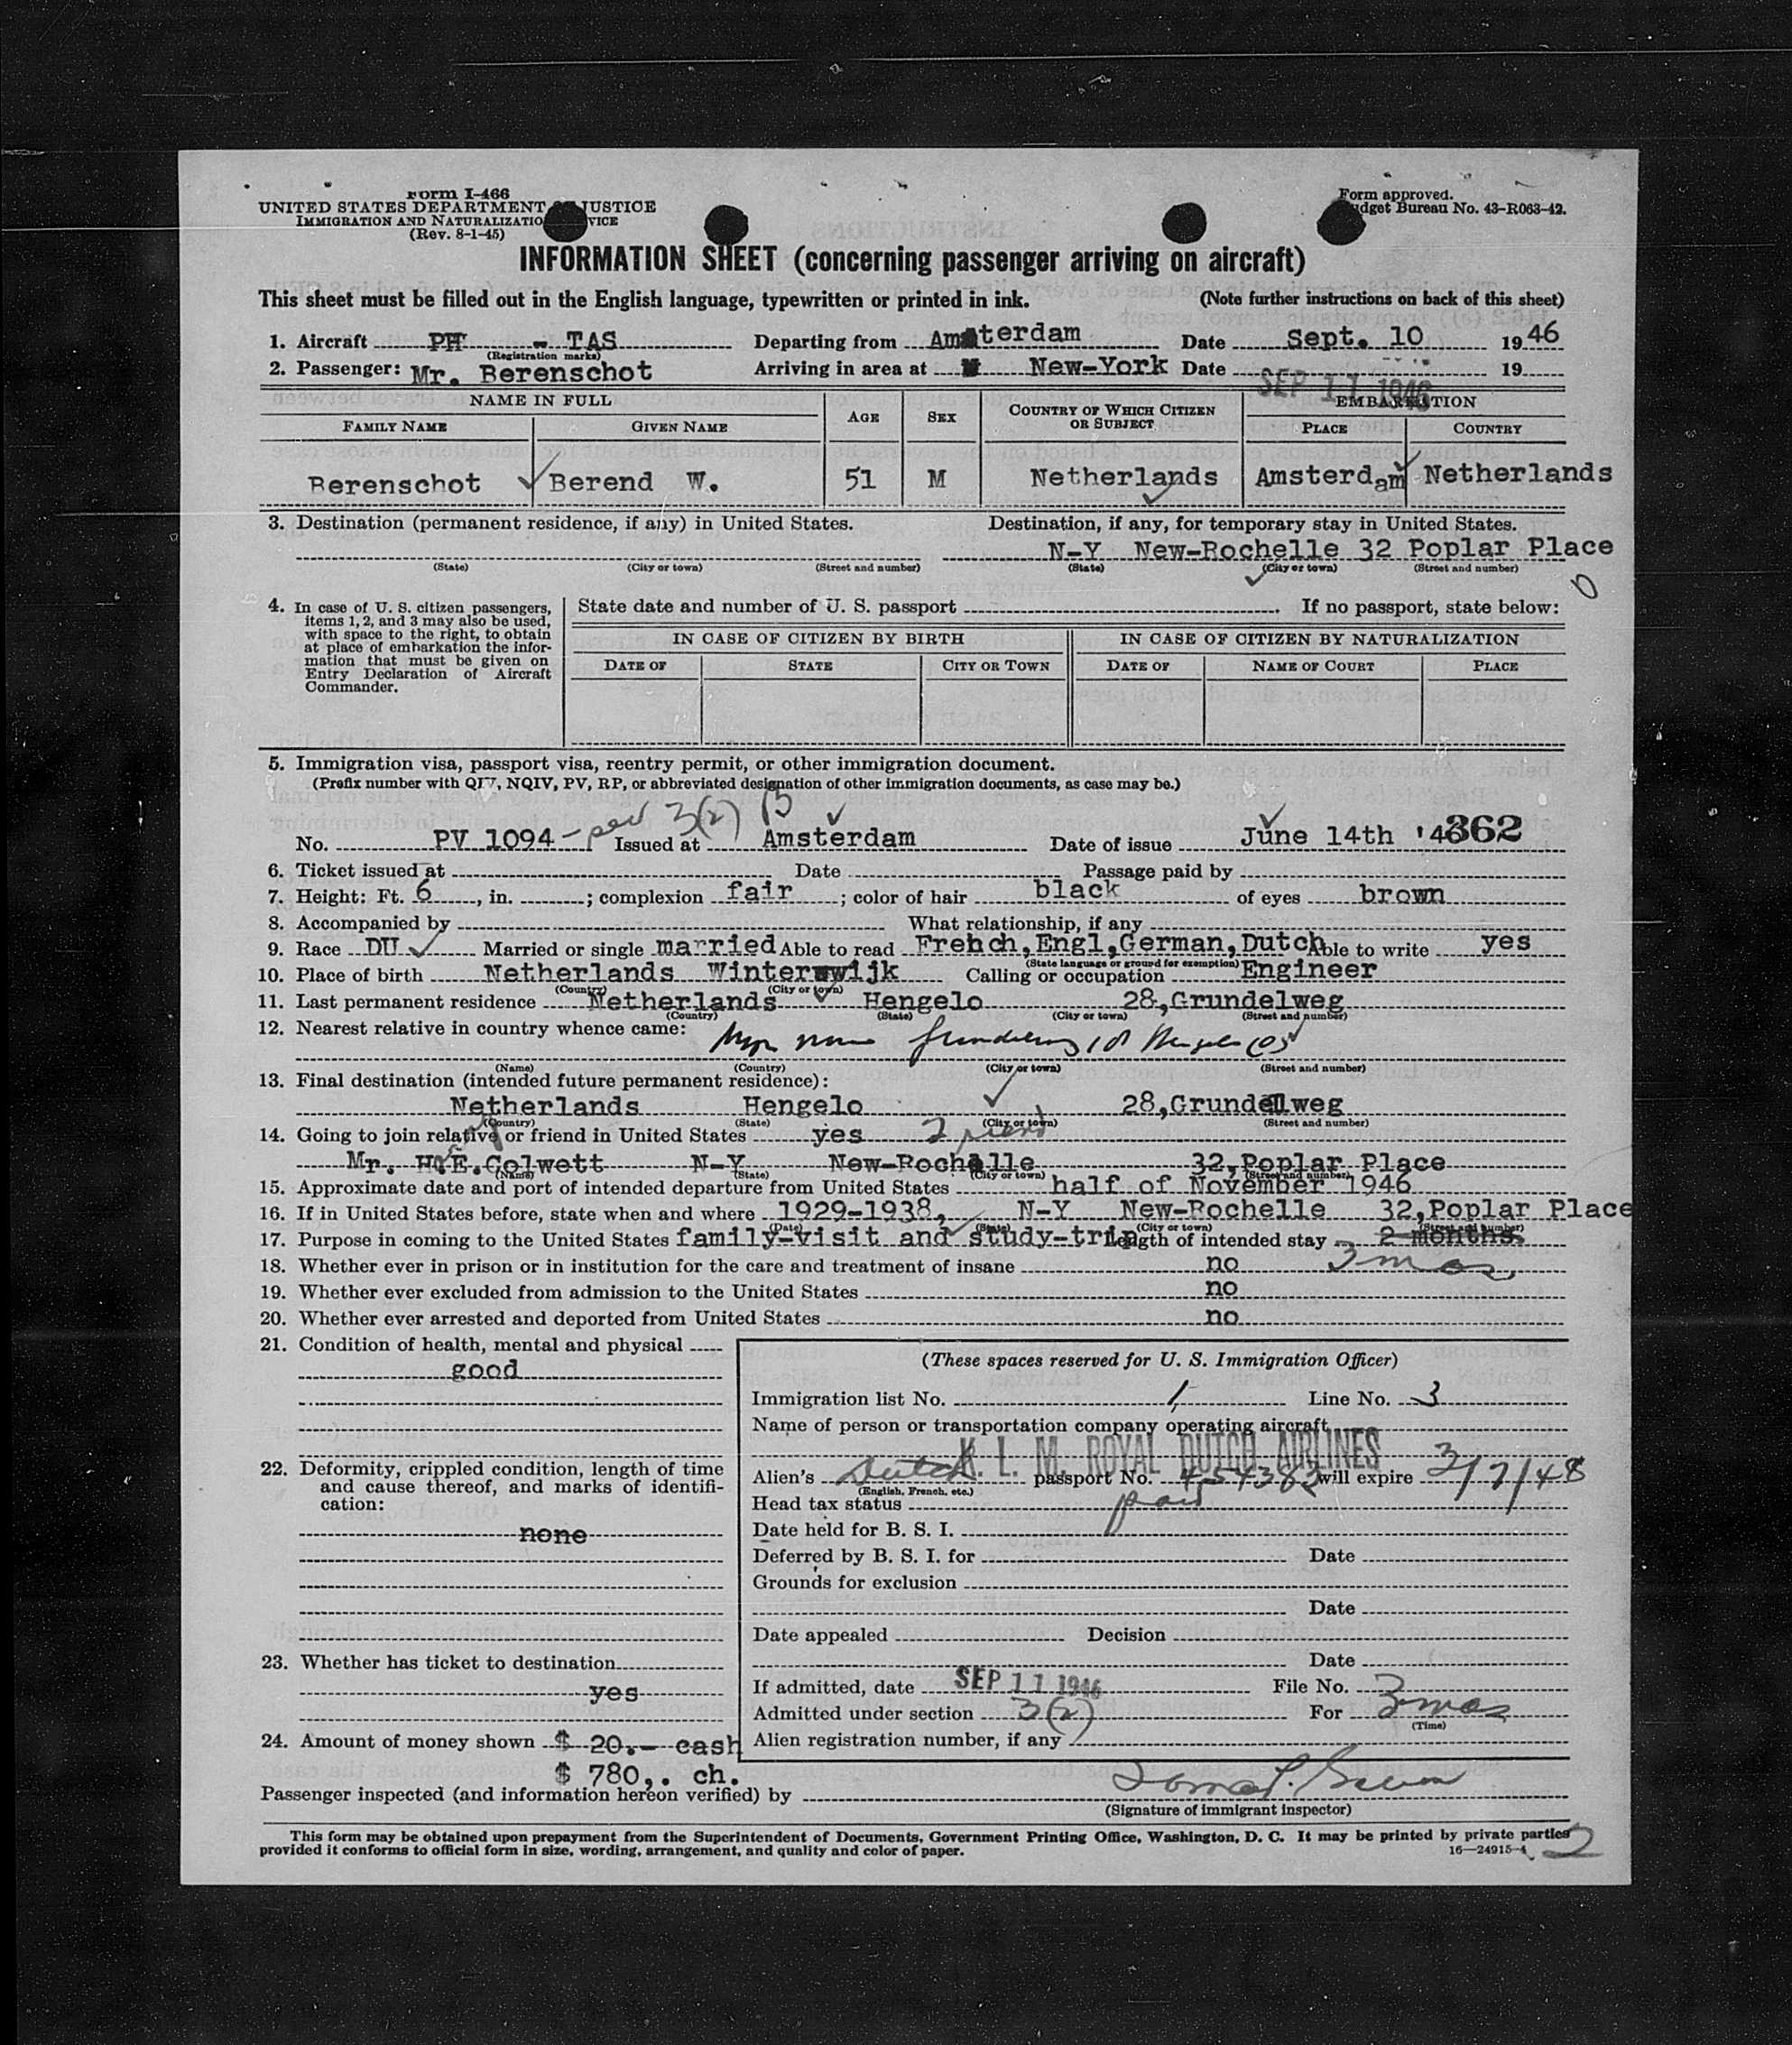 Form I-466
UNITED STATES DEPARTMENT JUSTICE
IMMIGRATION AND NATURALIZATIO VICE
(Rev. 8-1-45)
Form approved.
dget Bureau No. 43-R063-42.
INFORMATION SHEET (concerning passenger arriving on aircraft)
This sheet must be filled out in the English language, typewritten or printed in ink. (Note further instructions on back of this sheet)
1. Aircraft PH - TAS Departing from Amsterdam Date Sept. 10 1946
(Registration marks)
2. Passenger: Mr. Berenschot Arriving in area at New-York Date SEP 11 1946 19
NAME IN FULL AGE SEX COUNTRY OF WHICH CITIZEN OR SUBJECT EMBARKATION
FAMILY NAME GIVEN NAME PLACE COUNTRY
Berenschot Berend W. 51 M Netherlands Amsterdam Netherlands
3. Destination (permanent residence, if any) in United States. Destination, if any, for temporary stay in United States.
N-Y New-Rochelle 32 Poplar Place
(State) (City or town) (Street and number) (State) (City or town) (Street and number)
4. In case of U. S. citizen passengers, items 1, 2, and 3 may also be used, with space to the right, to obtain at place of embarkation the information that must be given on Entry Declaration of Aircraft Commander.
State date and number of U. S. passport . If no passport, state below:
IN CASE OF CITIZEN BY BIRTH IN CASE OF CITIZEN BY NATURALIZATION
DATE OF STATE CITY OR TOWN DATE OF NAME OF COURT PLACE
5. Immigration visa, passport visa, reentry permit, or other immigration document.
(Prefix number with QIV, NQIV, PV, RP, or abbreviated designation of other immigration documents, as case may be.)
3(2) B
No. PV 1094 Issued at Amsterdam Date of issue June 14th '4 362
6. Ticket issued at Date Passage paid by
7. Height: Ft. 6 , in. ; complexion fair ; color of hair black of eyes brown
8. Accompanied by What relationship, if any
9. Race DU Married or single married Able to read French, Engl, German, Dutch Able to write yes
(State language or ground for exemption)
10. Place of birth Netherlands Winterswijk Calling or occupation Engineer
(Country) (City or town)
11. Last permanent residence Netherlands Hengelo 28, Grundelweg
(Country) (State) (City or town) (Street and number)
12. Nearest relative in country whence came:
(Name) (Country) (City or town) (Street and number)
13. Final destination (intended future permanent residence):
Netherlands Hengelo 28, Grundelweg
(Country) (State) (City or town) (Street and number)
14. Going to join relative or friend in United States yes friend
Mr. H.E. Colwett N-Y New-Rochelle 32, Poplar Place
(Name) (State) (City or town) (Street and number)
15. Approximate date and port of intended departure from United States half of November 1946
16. If in United States before, state when and where 1929-1938, N-Y New-Rochelle 32, Poplar Place
(Date) (State) (City or town) (Street and number)
17. Purpose in coming to the United States family-visit and study-trip Length of intended stay 2 months.
3 mos.
18. Whether ever in prison or in institution for the care and treatment of insane no
19. Whether ever excluded from admission to the United States no
20. Whether ever arrested and deported from United States no
21. Condition of health, mental and physical
good
22. Deformity, crippled condition, length of time and cause thereof, and marks of identification:
none
23. Whether has ticket to destination
yes
24. Amount of money shown $ 20.- cash
$ 780,. ch.
(These spaces reserved for U. S. Immigration Officer)
Immigration list No. 1, Line No. 3
Name of person or transportation company operating aircraft
K. L. M. ROYAL DUTCH AIRLINES
Alien's Dutch passport No. 454382 will expire 3/7/48
(English, French, etc.)
Head tax status paid
Date held for B. S. I.
Deferred by B. S. I. for Date
Grounds for exclusion
Date
Date appealed Decision
Date
If admitted, date SEP 11 1946 File No.
Admitted under section 3(2) For 3 mos
(Time)
Alien registration number, if any
Passenger inspected (and information hereon verified) by
(Signature of immigrant inspector)
This form may be obtained upon prepayment from the Superintendent of Documents, Government Printing Office, Washington, D. C. It may be printed by private parties
provided it conforms to official form in size, wording, arrangement, and quality and color of paper. 16—24915-1
2